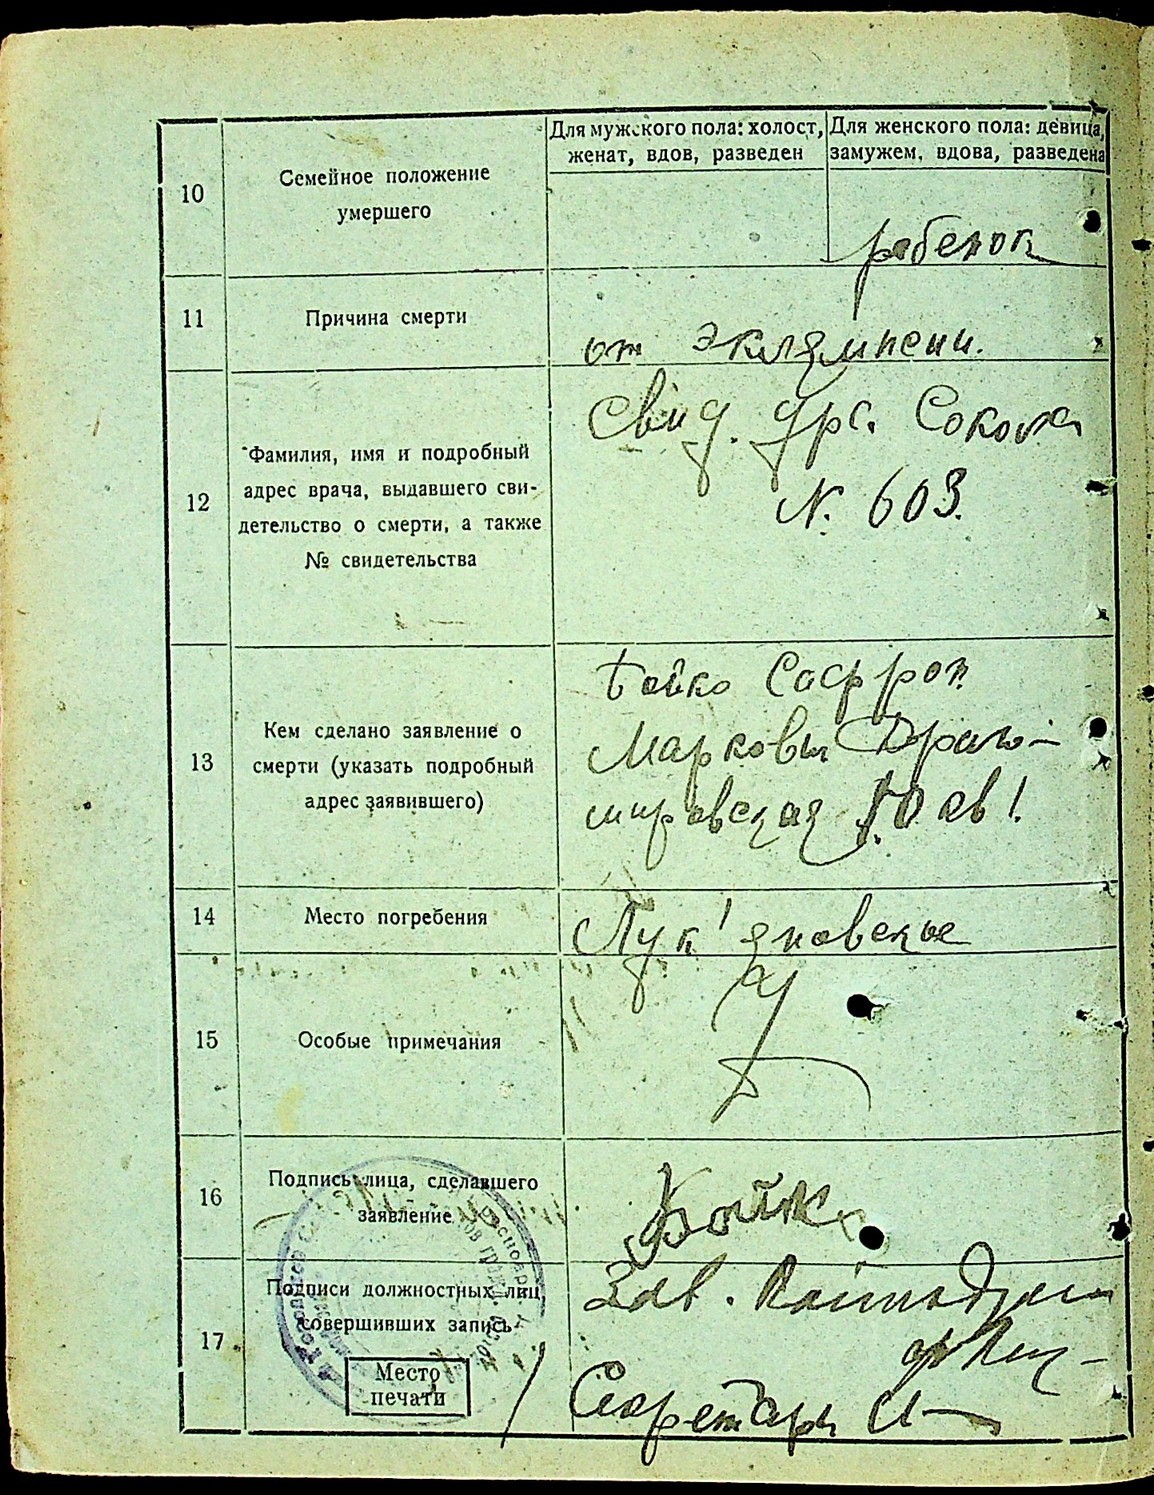 Для мужского пола: холост, женат, вдов, разведен
Для женского пола: девица, замужем, вдова, разведена
10
Семейное положение
умершего
ребенок
11
Причина смерти
от эклямпсии.
12
Фамилия, имя и подробный
адрес врача, выдавшего сви-
детельство о смерти, а также
№ свидетельства
Свид. дра. Сокола
N. 603.
13
Кем сделано заявление о
смерти (указать подробный
адрес заявившего)
Бойко Софрон
Марковы Драго-
мировская 10 кв 1.
14
Место погребения
Лук'яновское
15
Особые примечания
16
Подпись лица, сделавшего
заявление
Бойко
17
Подписи должностных лиц,
совершивших запись
Место
печати
Зав.
Секретарь